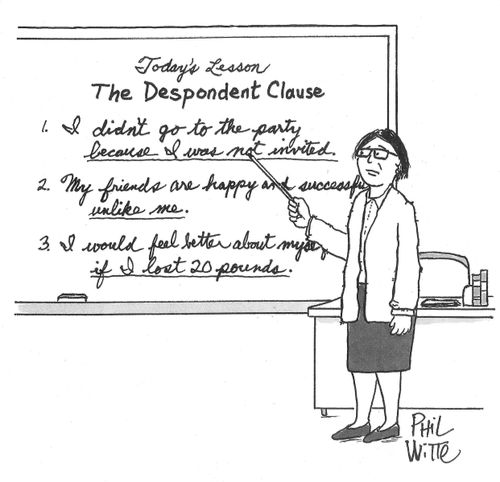 Today's Lesson
The Despondent Clause
1. I didn't go to the party
because I was not invited.
2. My friends are happy and successful
unlike me.
3. I would feel better about
if I lost 20 pounds.
PHIL
WITTE